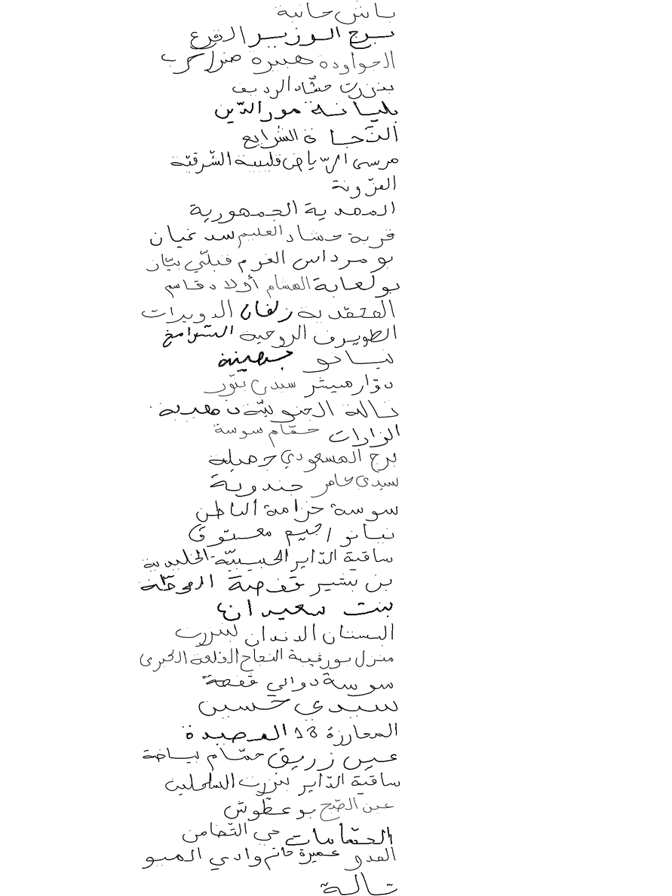 باش حانبة
برج الوزير القرع
الحواودة هبيرة
بنزرت حشاد الرديف
بليانة مور الدّين
النّجاة الشرايع
مرسى الرياض قليبية الشّرقيّة
المزّونة
المهدية الجمهورية
قرية حشاد العليم سد غيان
بومرداس القرم قبلّي بيّاز
بولعابة الهشام أولاد قاسم
العقدية زلفان الدويرات
الطويرف الروحية الشرامخ
نيانو جهينة
دوّار هيشر سيدي بنّور
تالة
الزارات حمّام سوسة
برج المسعودي جميلة
سيدي عامر جندوبة
سوسة حزامة الباطن
نيانو اجيم معتوق
ساقية الدّاير الحبيبيّة الخليدية
بن بشير قفصة
بنت سعيدان
البستان الدندان بنزرت
منزل بورقيبة النجاح القلعة الكبرى
سوسة دوالي قفصة
سيدي حسين
المعازرة 18
عين زريق حمّام بياضة
ساقية الدّاير بنزرت الساحلين
عين الصّبح بوعطوش
الحمّامات حي التّضامن
عميرة حاتم وادي
تالة